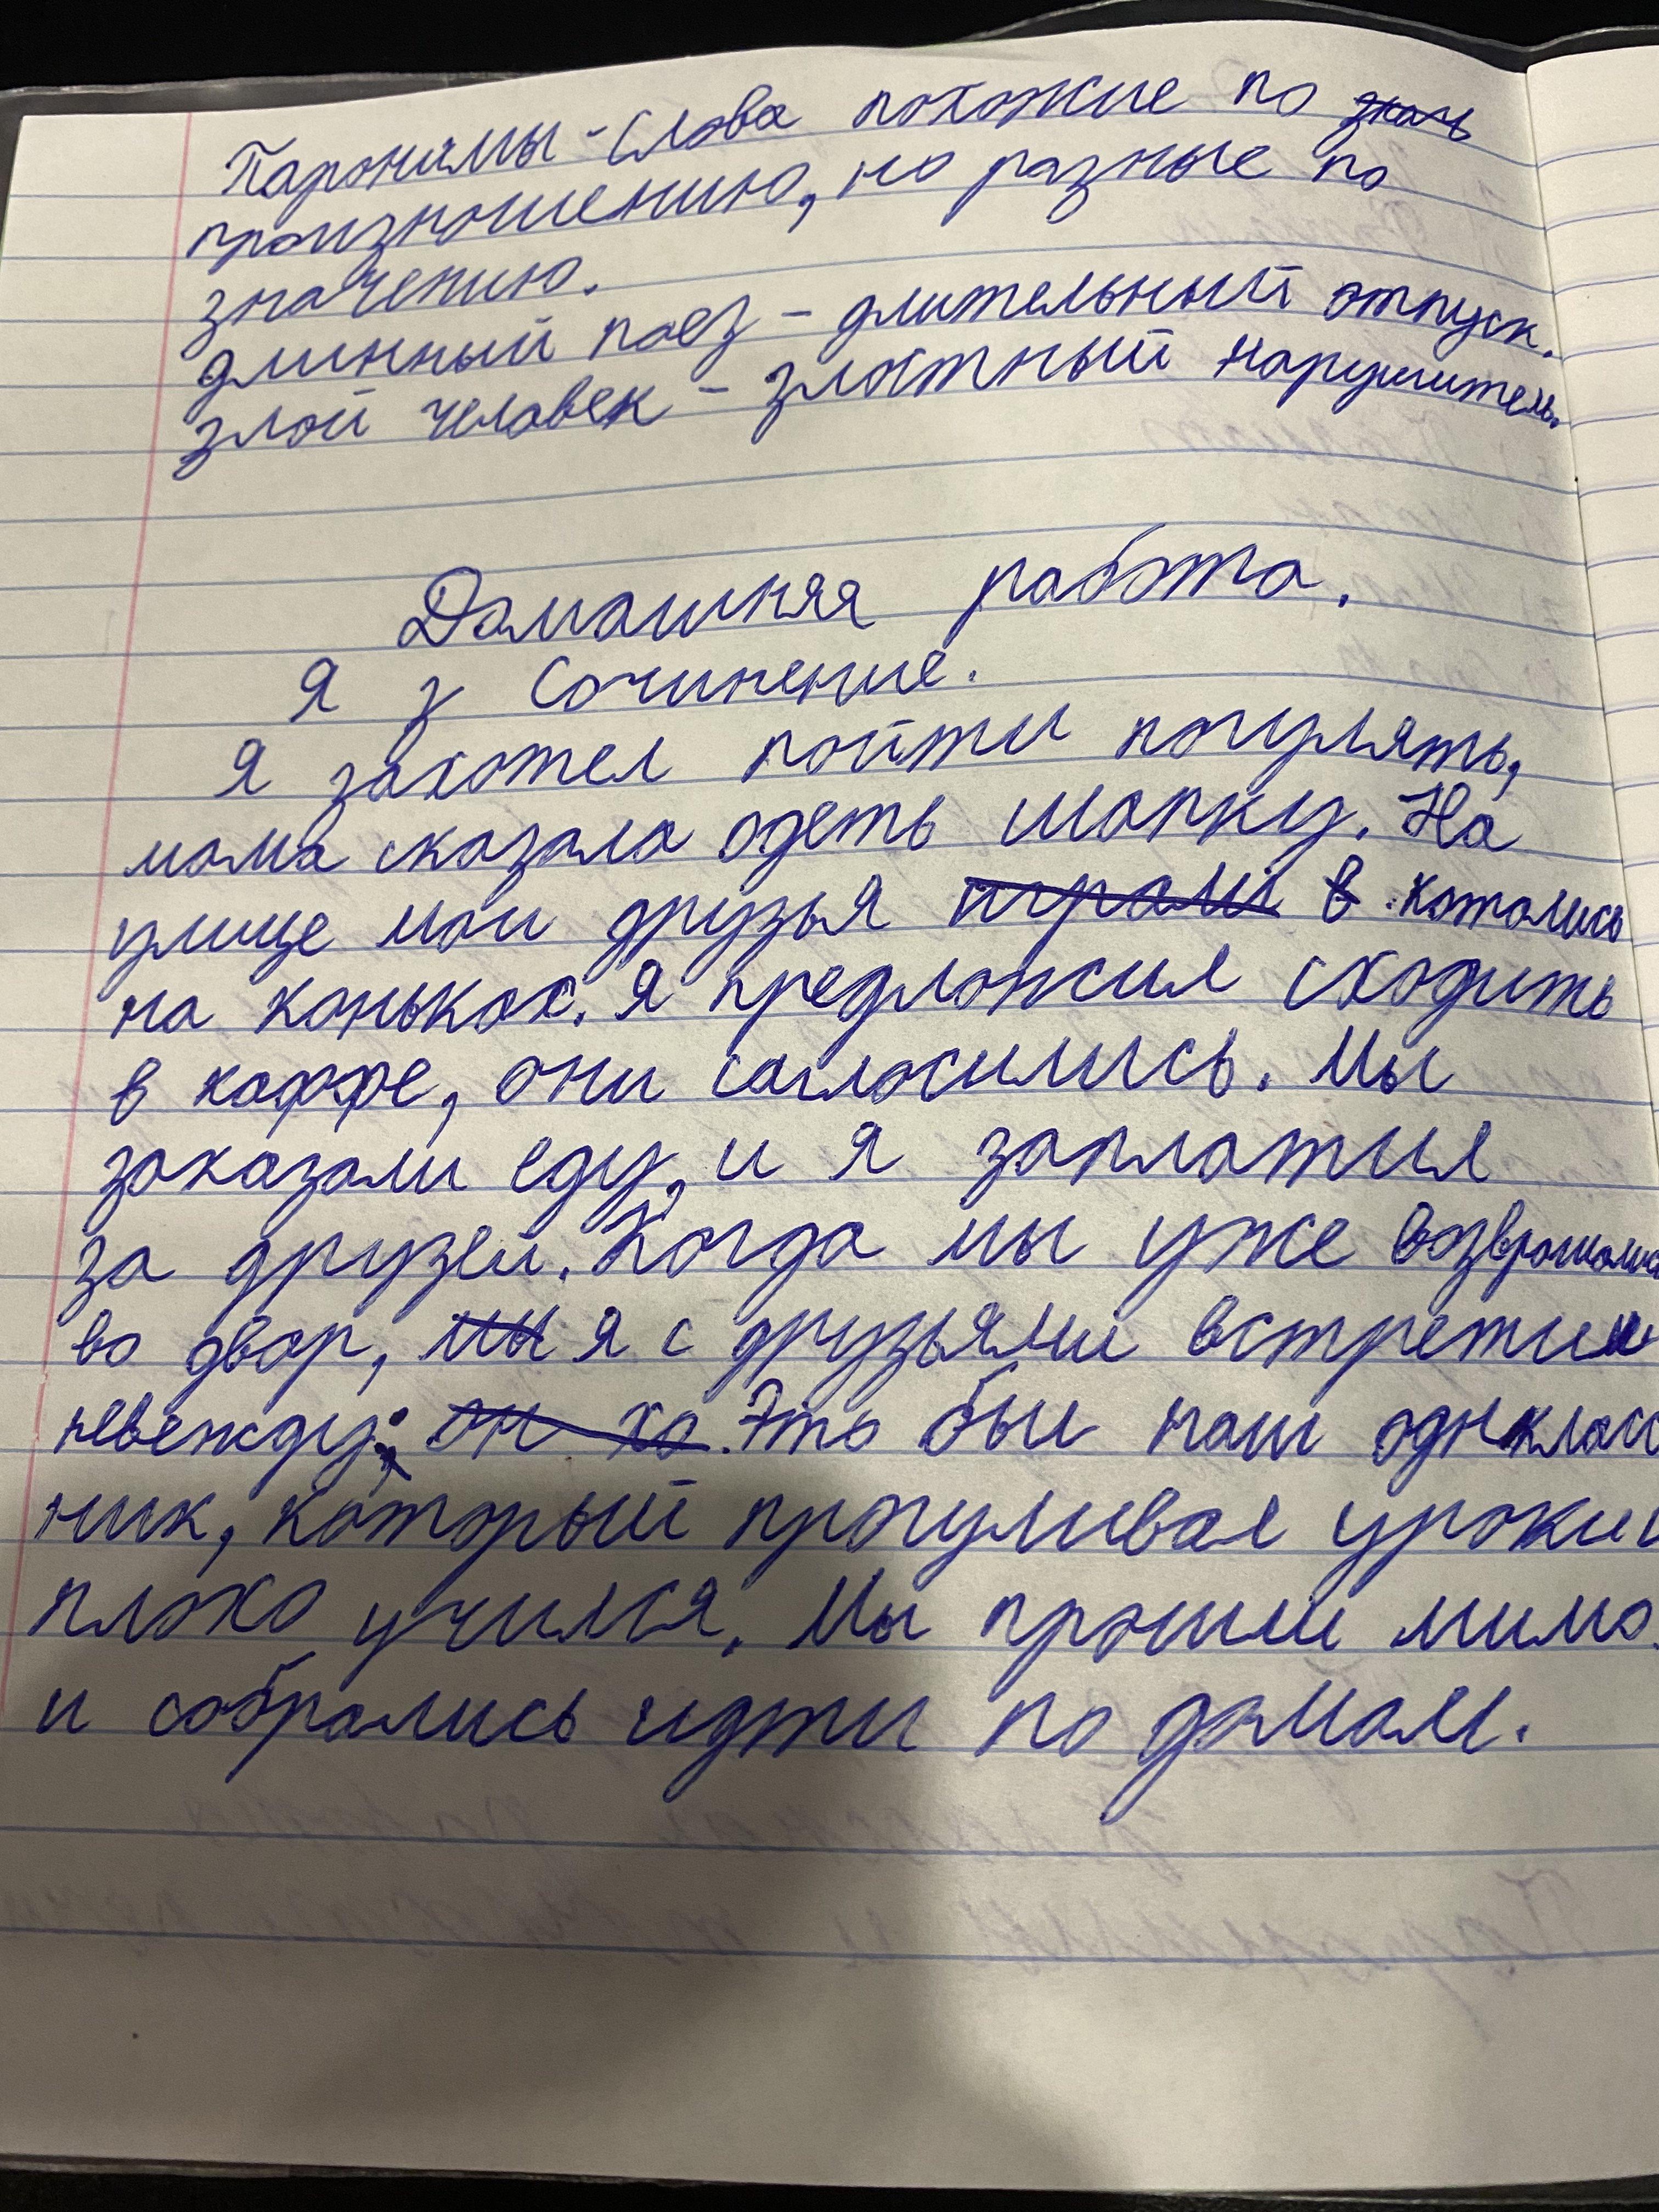 Паронимы - слова похожие по знач
произношению, но разные по
значению.
длинный поез - длительный отпуск.
злой человек - злостный нарушитель.
Домашняя работа.
Я з Сочинение.
Я захотел пойти погулять,
мама сказала одеть шапку. На
улице мои друзья играли в катались
на коньках. Я предложил сходить
в каффе, они согласились. Мы
заказали еду, и я заплатил
за друзей. Когда мы уже
во двор, мы я с друзьями встретили
невежду. он хо Это был наш однкласс
ник, который прогуливал уроки и
плохо учился. Мы прошли мимо
и собрались идти по домам.